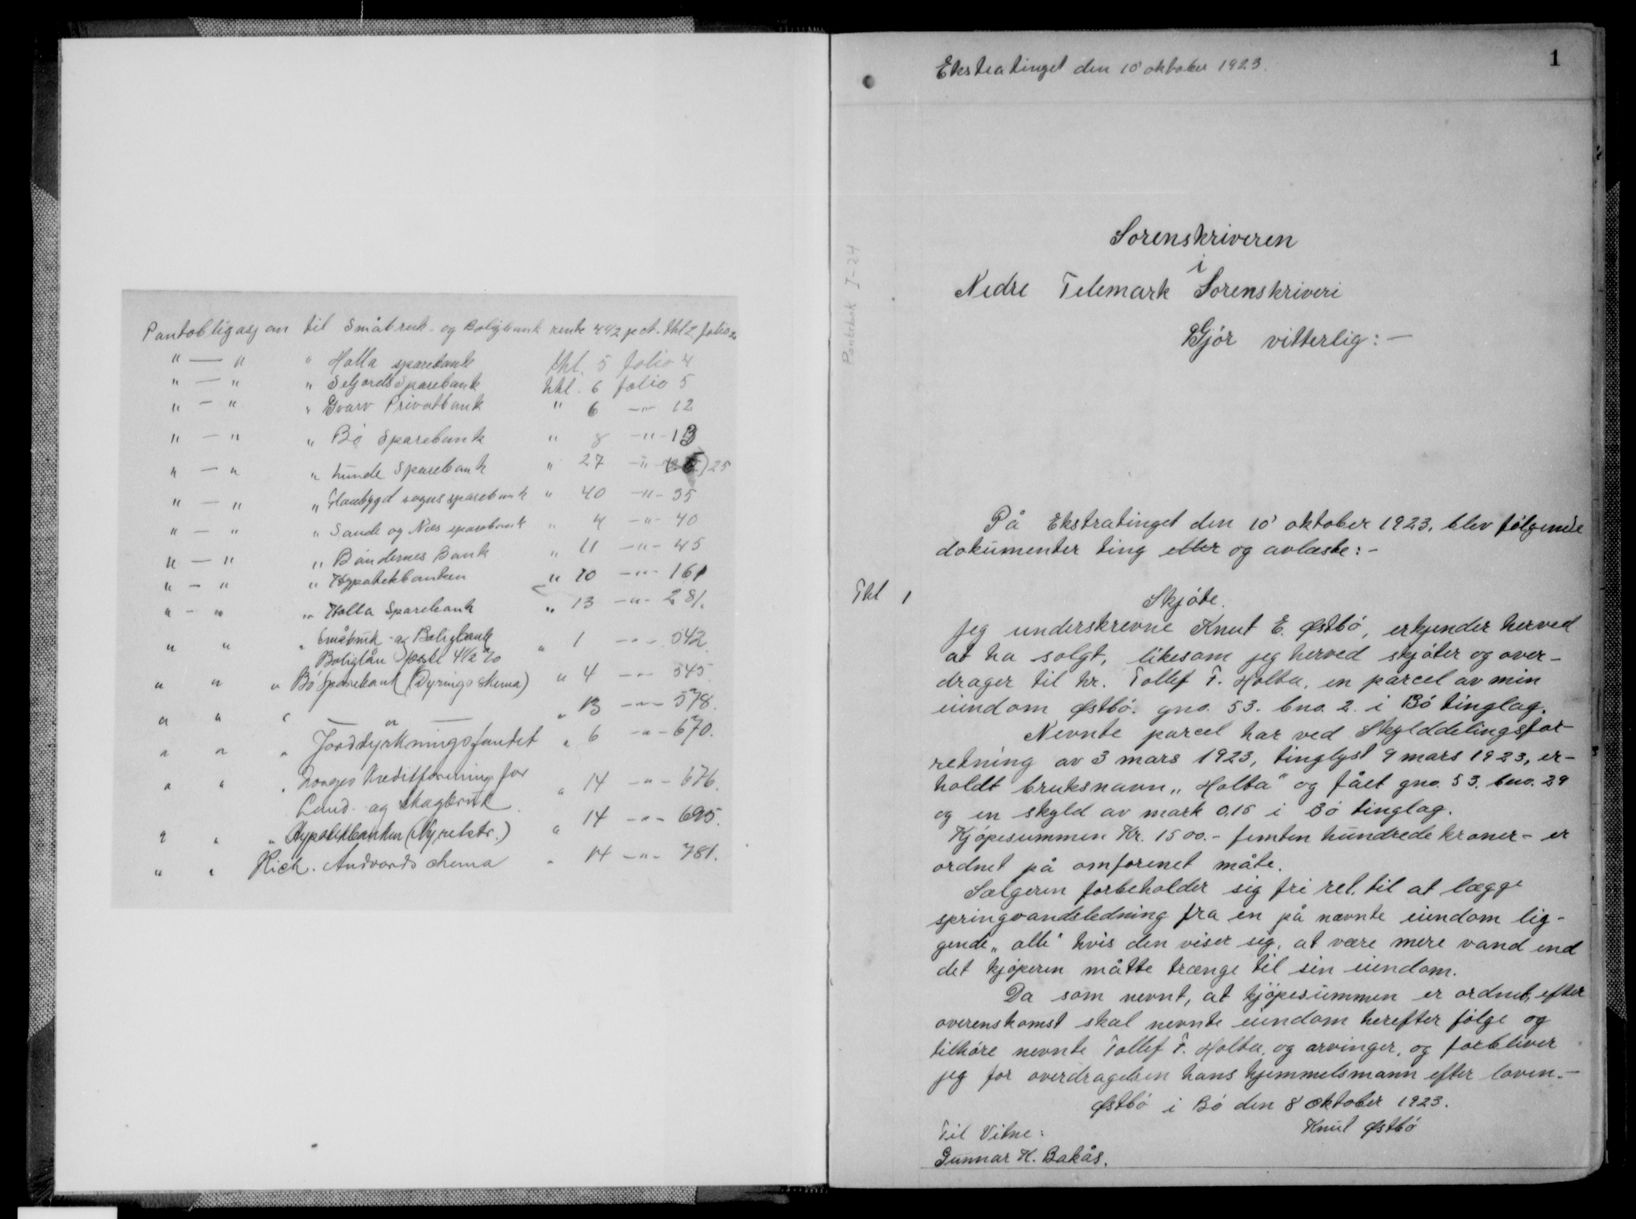 Pantobligasjon til Småbruk- og Boligbank rente 4 1/2 pct. thl 2 folio
" — " " Holla sparebank thl. 5 folio 4
" — " " Seljords Sparebank thl. 6 folio 5
" — " " Gvarv Privatbank " 6 — " — 12
" — " " Bø Sparebank " 8 — " — 13
" — " " Lunde Sparebank " 27 — " — 25
" — " " Flaabygd sogns sparebank " 40 — " — 35
" — " " Sande og Næs sparebank " 4 — " — 40
" — " " Bøndernes Bank " 11 — " — 45
" — " " Hypotekbanken " 70 — " — 161
" — " " Holla Sparebank " 13 — " — 281.
" " " Småbruk- og Boligbank " 1 — " — 342.
Boliglån 4 1/2 %
" " " Bø Sparebank (Dyrings skema) " 4 — " — 345.
" " " — " — " 13 — " — 578.
" " " Jorddyrkningsfondet " 6 — " — 670.
" " " Norges Kreditforening for
Land- og skogbruk " 14 — " — 676.
" " " Hypotekbanken (Ny retstr.) " 14 — " — 695.
" " Rich. Andvords skema " 14 — " — 781.
Ekstratinget den 10' oktober 1923.
1
Pantebok I-24
Sorenskriveren
i
Nedre Telemark Sorenskriveri
Gjör vitterlig: —
På Ekstratinget den 10' oktober 1923, blev følgende
dokumenter ting eller og avlæste: -
Tkl 1
Skjöte.
Jeg underskrevne Knut E. Østbö, erkjender herved
at ha solgt, likesom jeg herved skjöter og over-
drager til hr. Tollef T. Holta, en parcel av min
eiendom Østbö. gno. 53. bno. 2. i Bö tinglag.
Nevnte parcel har ved Skylddelingsfor-
retning av 3 mars 1923, tinglyst 9 mars 1923, er-
holdt bruksnavn „Holta" og fået gno. 53. bno. 29
og en skyld av mark 0.15 i Bö tinglag.
Kjöpesummen Kr. 1500.- femten hundrede kroner - er
ordnet på omforenet måte.
Sælgeren forbeholder sig fri ret, til at lægge
springvandsledning fra en på nævnte eiendom lig-
gende „olle" hvis den viser sig, at være mere vand end
det kjöperen måtte trænge til sin eiendom.
Da som nevnt, at kjöpesummen er ordnet, efter
overenskomst skal nevnte eiendom herefter fölge og
tilhöre nevnte Tollef T. Holta, og arvinger, og forbliver
jeg for overdragelsen hans hjemmelsmann efter loven. —
Østbö i Bö den 8 oktober 1923.
Knut Østbö
Til Vitne:
Gunnar H. Bakås.